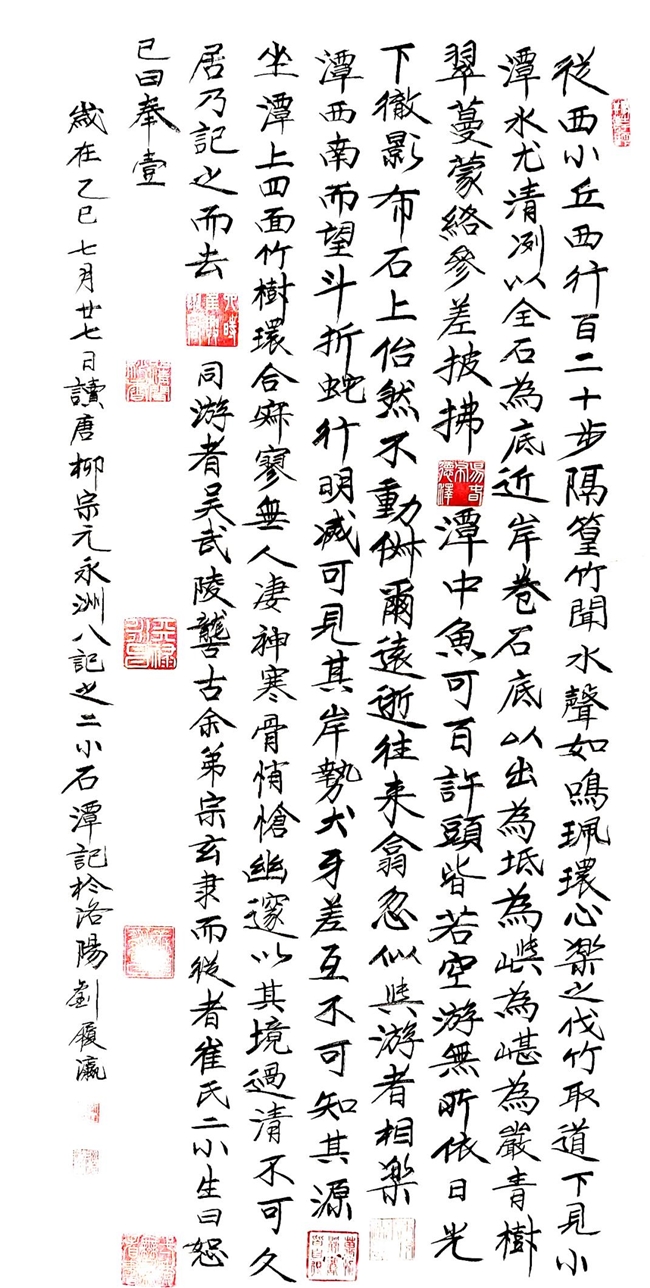 從西小丘西行百二十步隔篁竹聞水聲如鳴珮環心樂之伐竹取道下見小
潭水尤清冽以全石為底近岸卷石底以出為坻為嶼為嵁為巖青樹
翠蔓蒙絡參差披拂潭中魚可百許頭皆若空游無所依日光
下徹影布石上佁然不動俶爾遠逝往来翕忽似與游者相樂
潭西南而望斗折蛇行明滅可見其岸勢犬牙差互不可知其源
坐潭上四面竹樹環合寂寥無人凄神寒骨悄愴幽邃以其境過清不可久
居乃記之而去同游者吴武陵龔古余弟宗玄隶而從者崔氏二小生曰恕
已曰奉壹
歲在乙巳七月廿七日讀唐柳宗元永洲八記之二小石潭記於洛陽劉履瀛